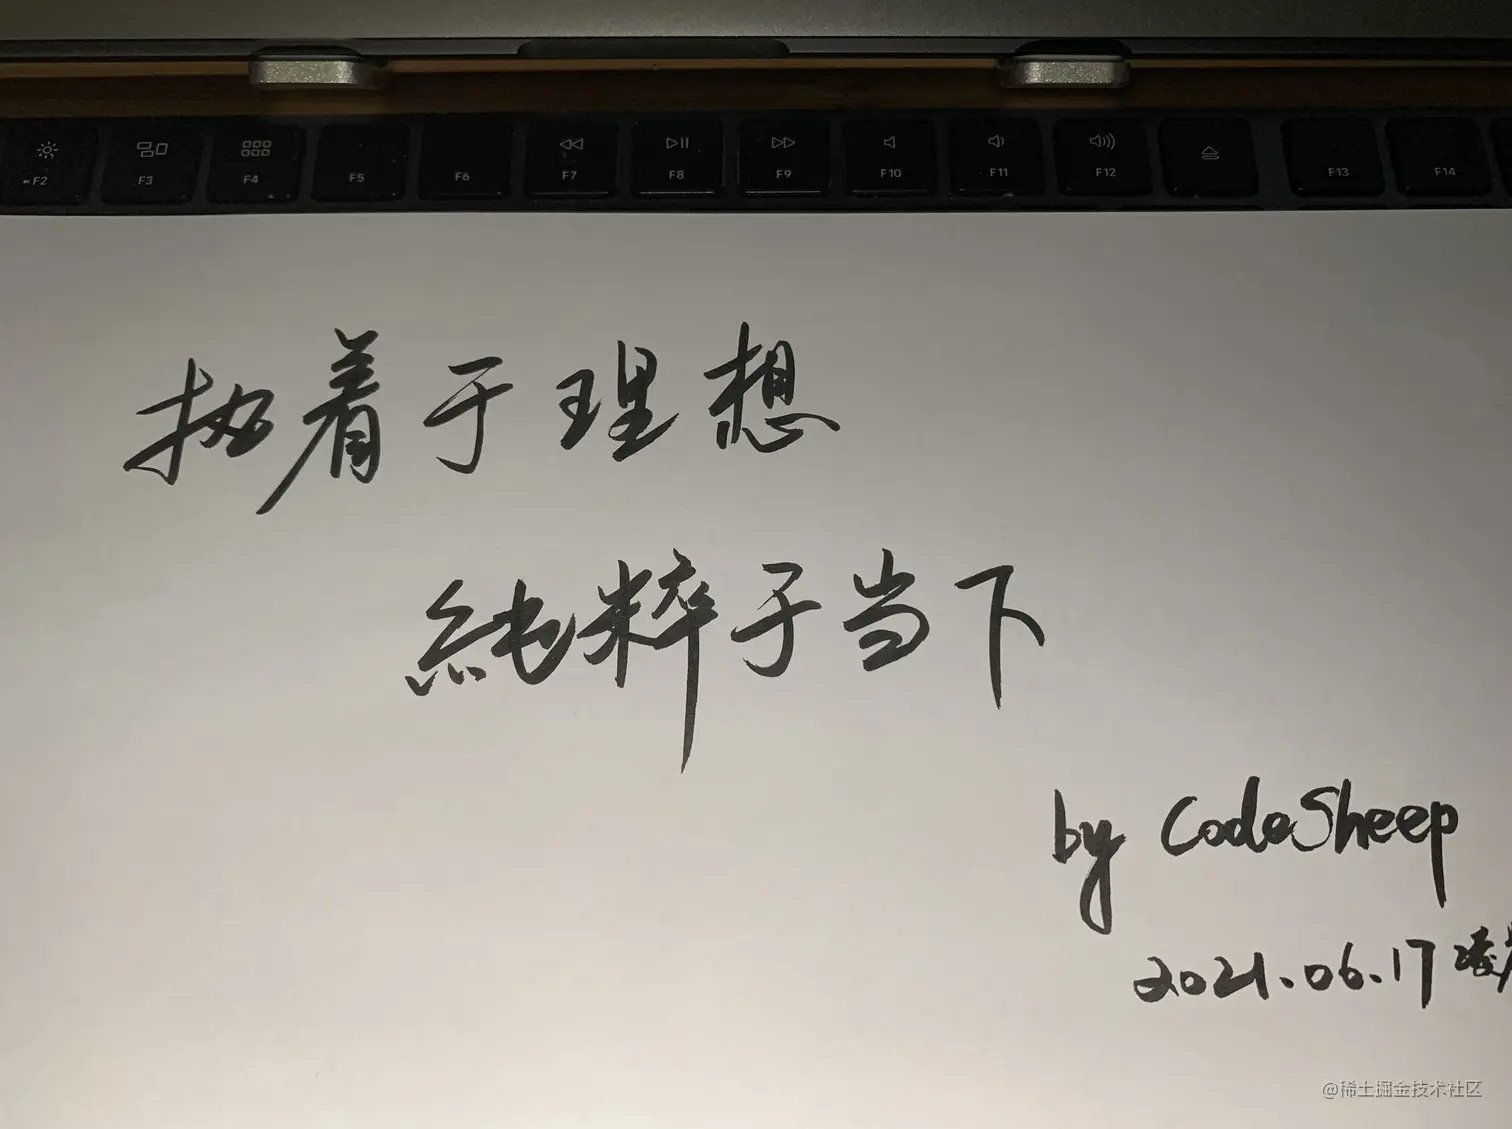 F2 F3 F4 F5 F6 F7 F8 F9 F10 F11 F12 F13 F14
执着于理想
純粹于当下
by CodeSheep
2021.06.17 凌
@稀土掘金技术社区